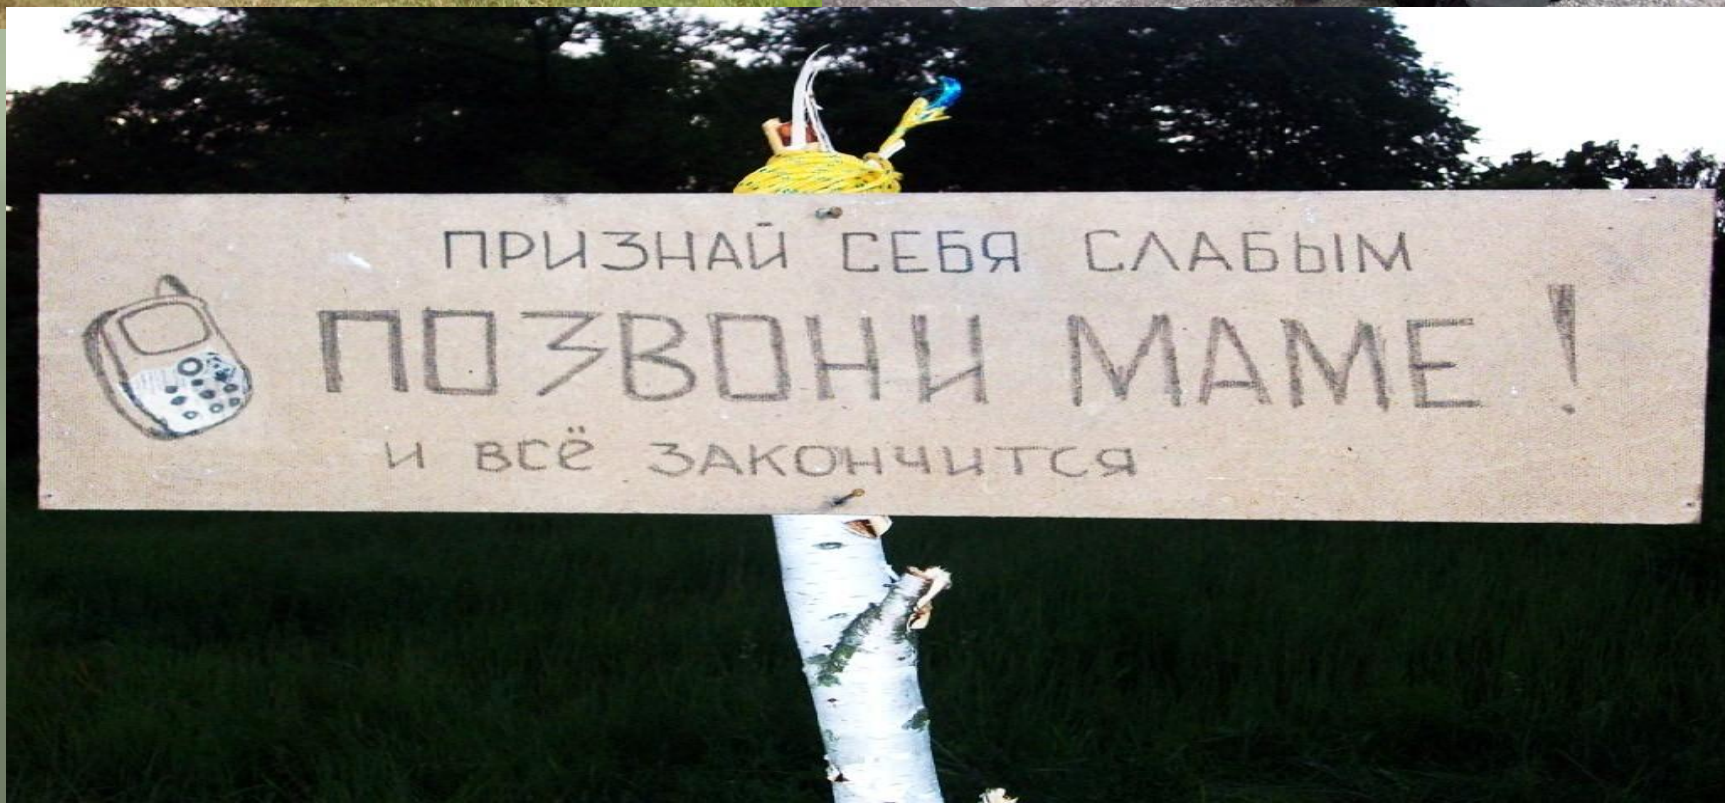 ПРИЗНАЙ СЕБЯ СЛАБЫМ
ПОЗВОНИ МАМЕ!
и всё закончится